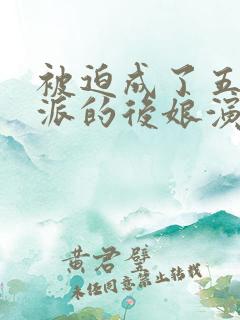 被迫成了五
派的後娘演
黄君璧
未经同意禁止转载